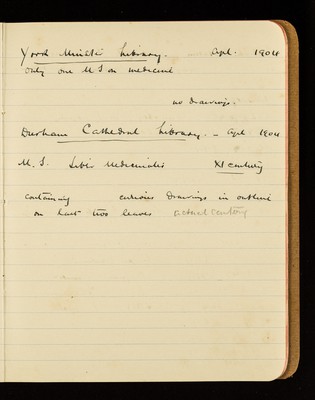 York Minster Library. Apl. 1904
only one MS on medicine
no drawings.
Durham Cathedral Library. – Apl 1904
M.S. Liber Medicinalis XI century
containing curious drawings in outline
on last two leaves century